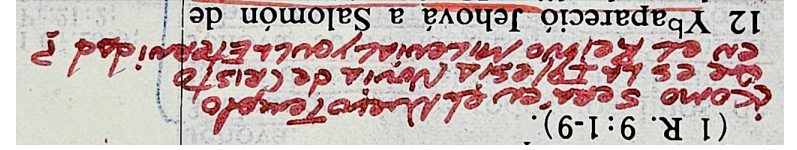 (1 R. 9:1-9).
¿como será en el Nuevo Templo
que es LA IglesiA Novia de CRISTO
en el Reino Milenial y en la Eternidad?
12 Y ᵇapareció Jehová a Salomón de